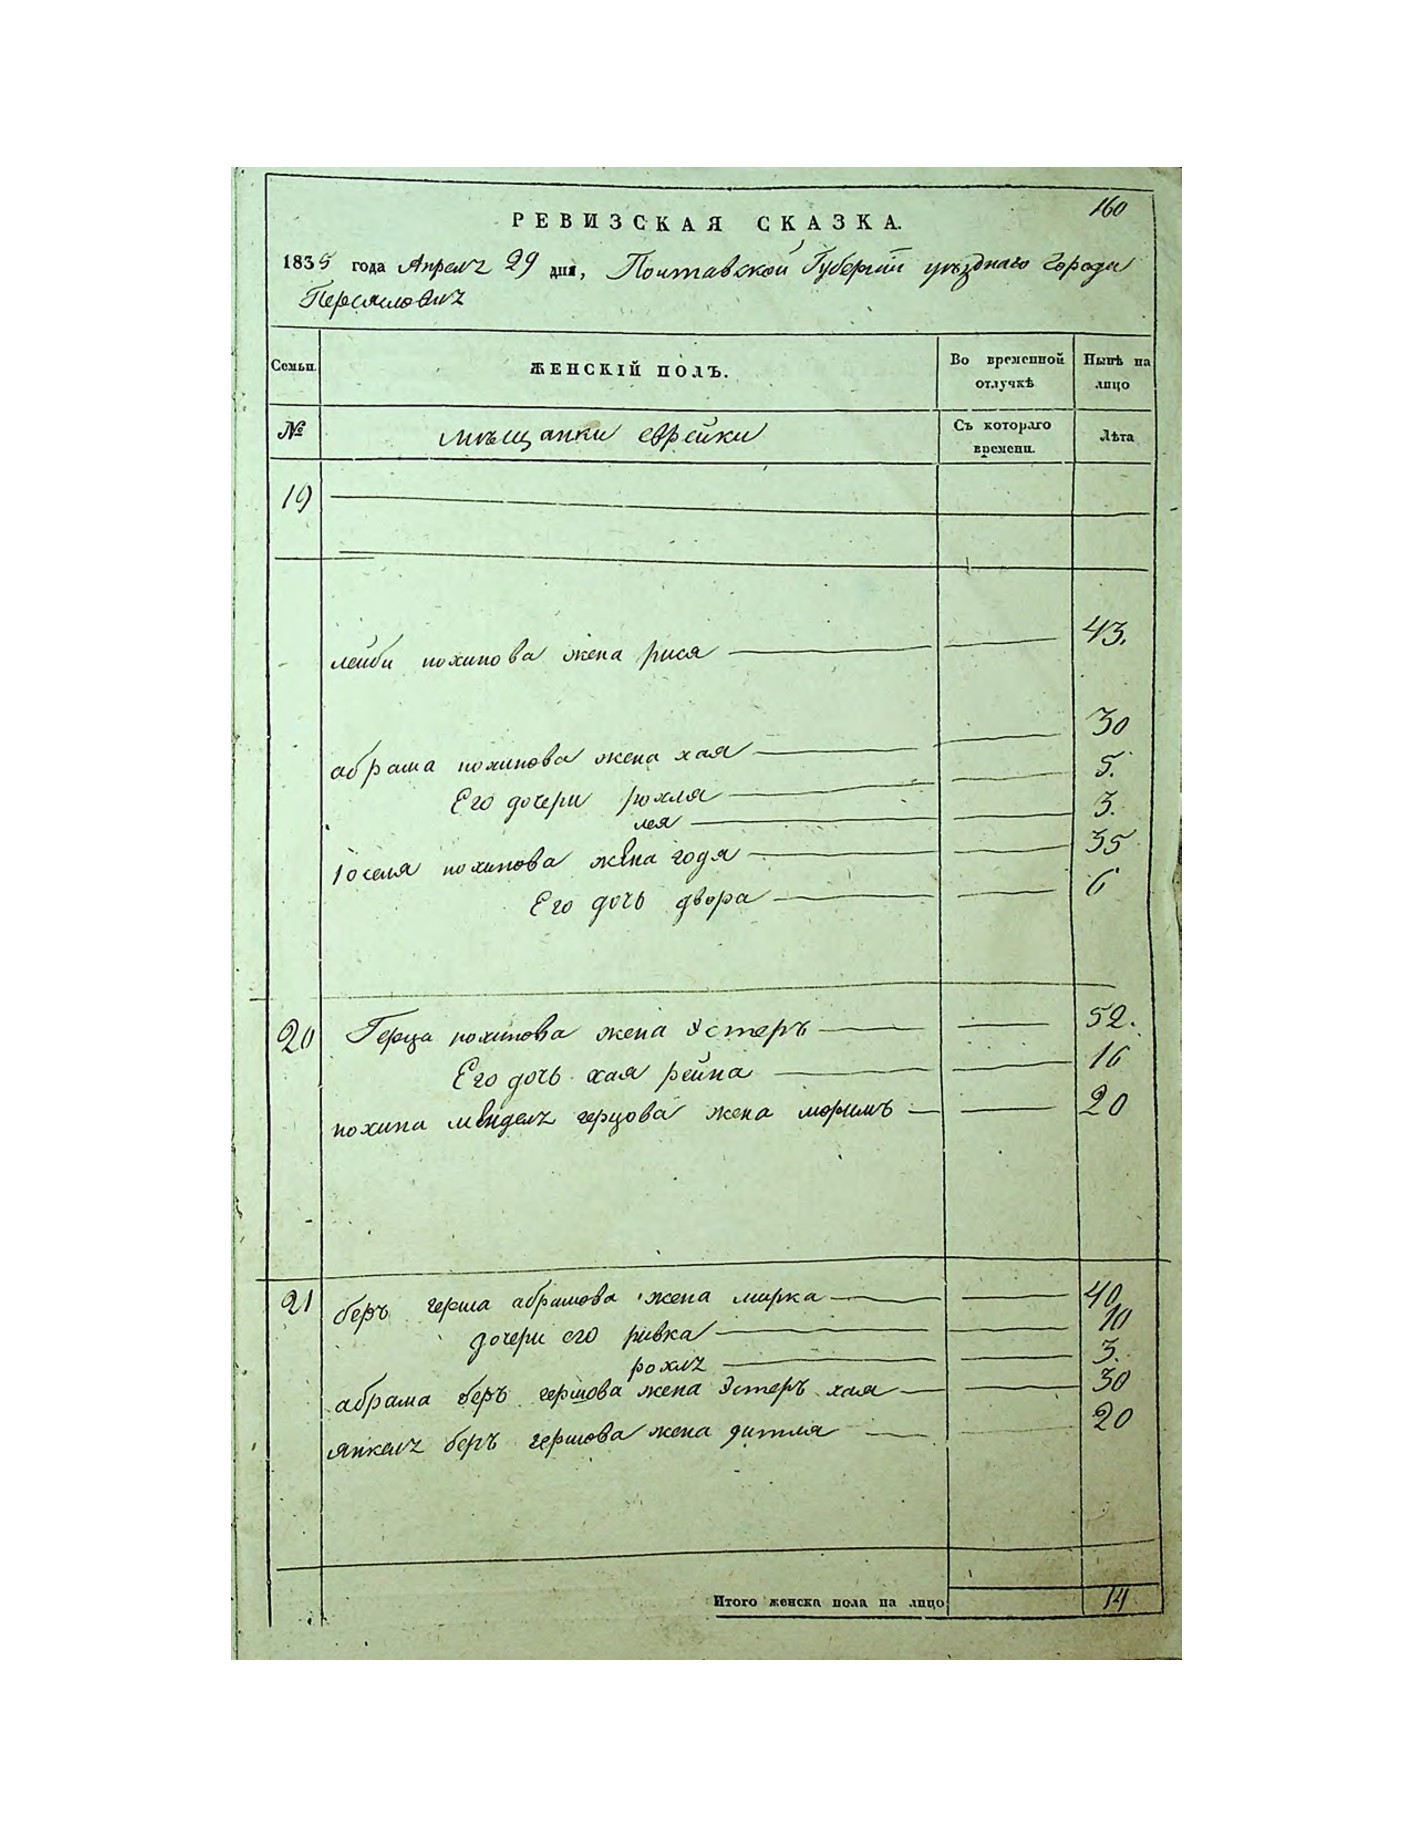 160
РЕВИЗСКАЯ СКАЗКА.
1835 года Апреля 29 дня, Полтавской Губернии уѣзднаго города
Переяславля
Семьи. ЖЕНСКІЙ ПОЛЪ. Во временной отлучкѣ Нынѣ на лицо
№ мѣщанки еврейки Съ котораго времени. Лѣта
19
лейби нохимова жена рися 43.
абрама нохимова жена хая 30
Его дочери рохля 5.
лея 3.
Іоселя нохимова жена годя 35
Его дочь двора 6
20 Герца нохимова жена эстеръ 52.
Его дочь хая рейна 16
нохима мендель герцова жена 20
21 беръ герша абрамова жена мирка 40
дочери его ривка 10
рохля 3.
абрама беръ гершова жена эстеръ хая 30
янкель беръ гершова жена 20
Итого женска пола на лицо 14